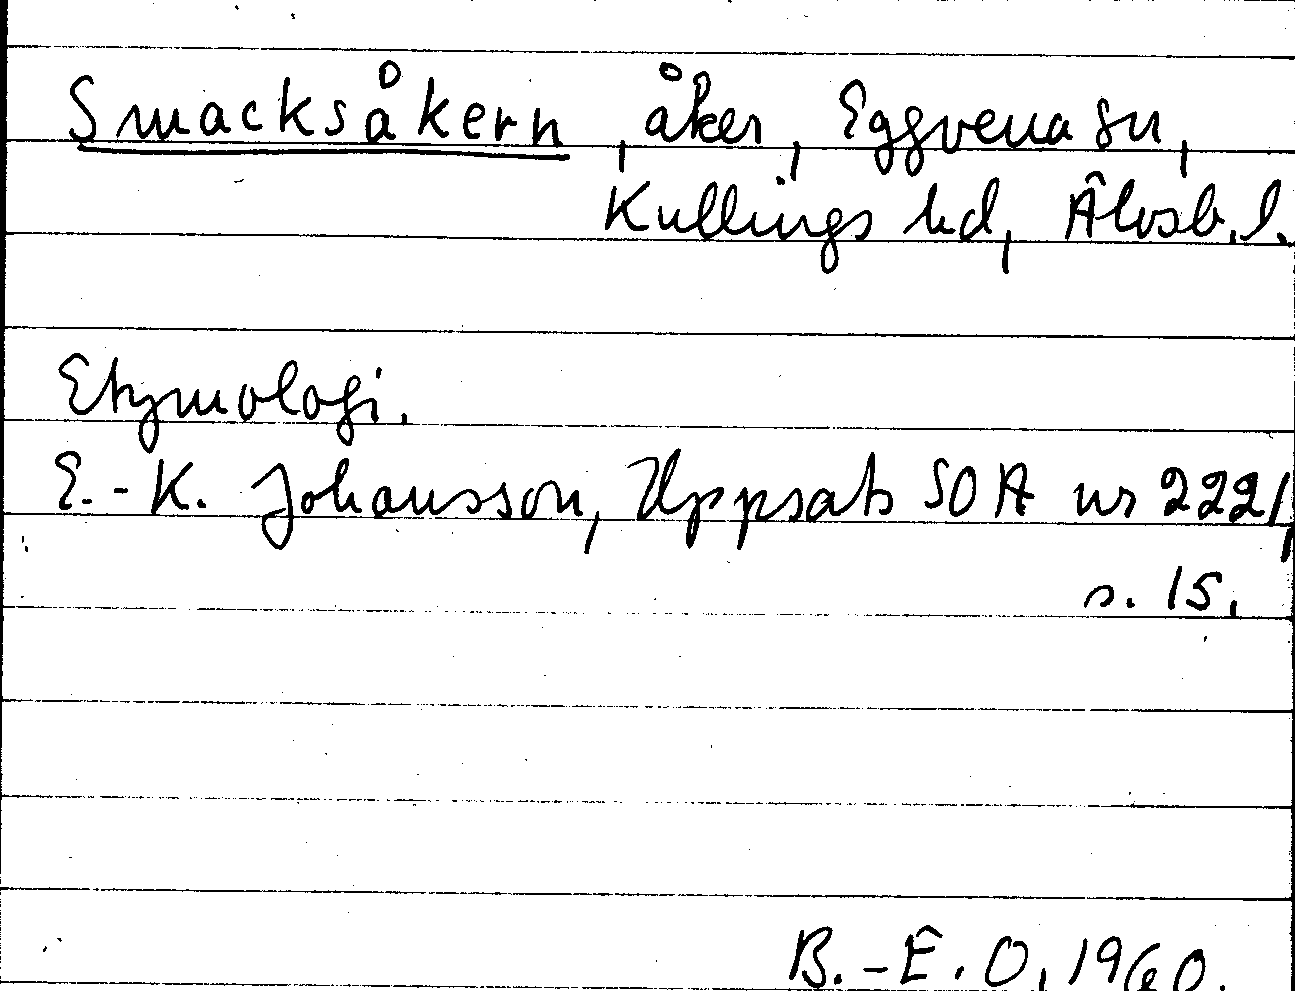 Smacksåkern, åker, Eggvena sn,
Kullings hd, Älvsb. l.
Etymologi.
E.-K. Johansson, Uppsats SOA nr 2221,
s. 15.
B.-E. O. 1960.